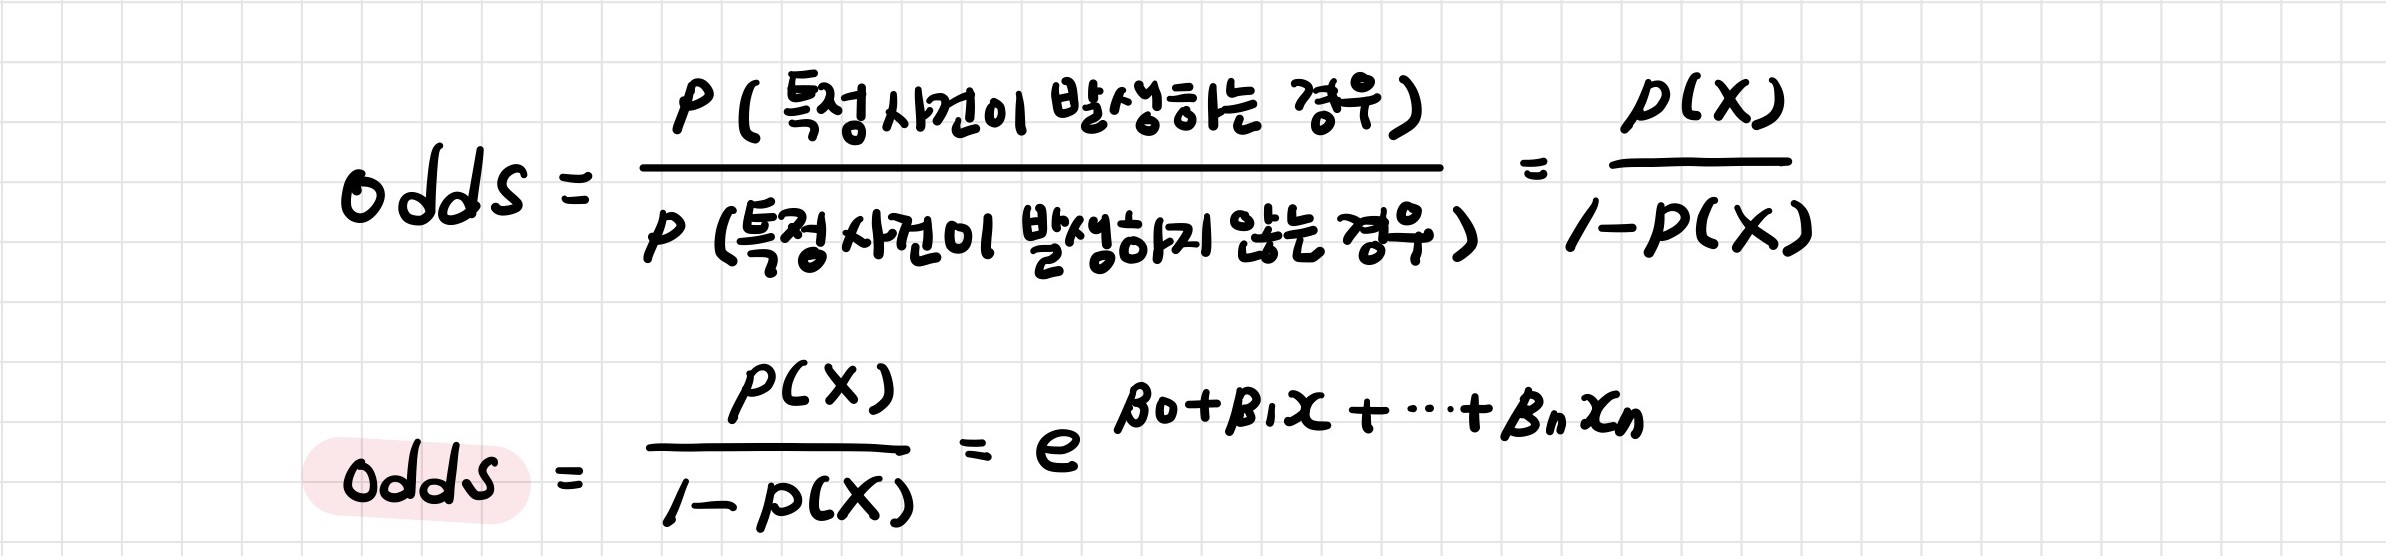 odds = P(특정 사건이 발생하는 경우) / P(특정 사건이 발생하지 않는 경우) = P(X) / 1-P(X)
odds = P(X) / 1-P(X) = e^β0+β1x+⋯+βnxn